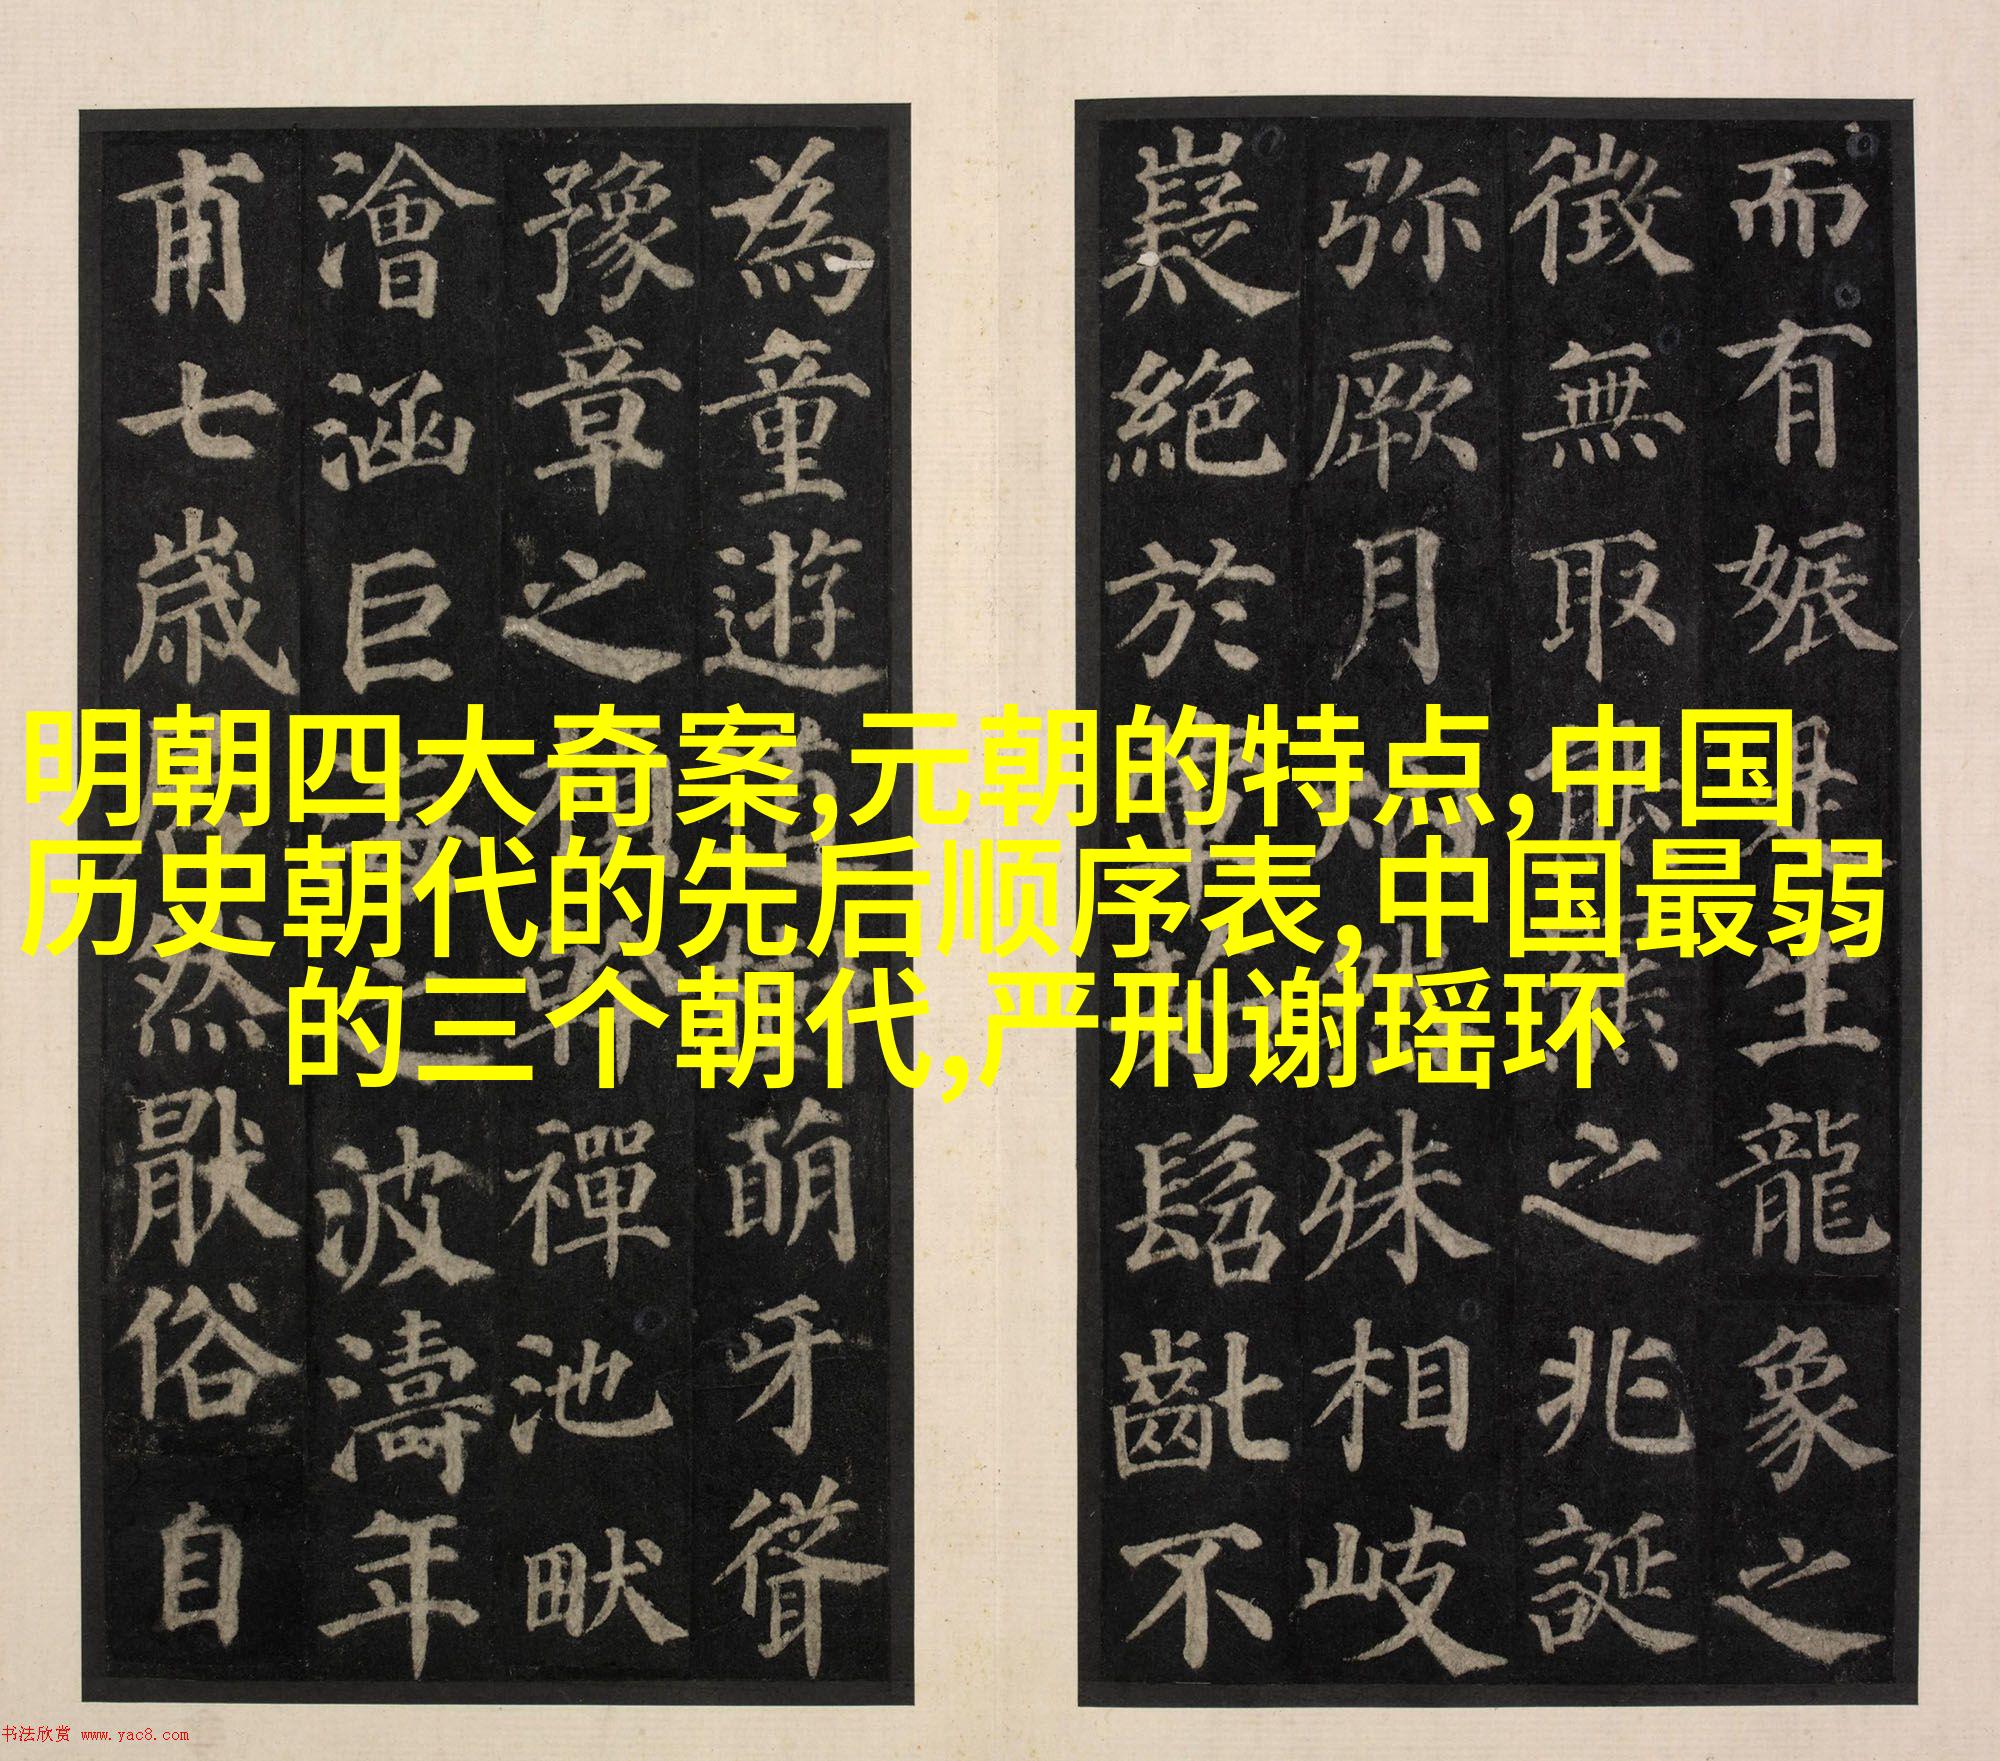 明朝四大奇案,元朝的特点,中国
历史朝代的先后顺序表,中国最弱
的三个朝代,严刑谢瑶环
而有娠是生龍象之
徵無取之兆誕
弥厥月殊相岐
嶷絕於髫齔不
為童遊萌牙聳
豫章之禪池畎
澮涵巨海之波濤年
甫七歲居然厭俗自
书法欣赏 www.yac8.com